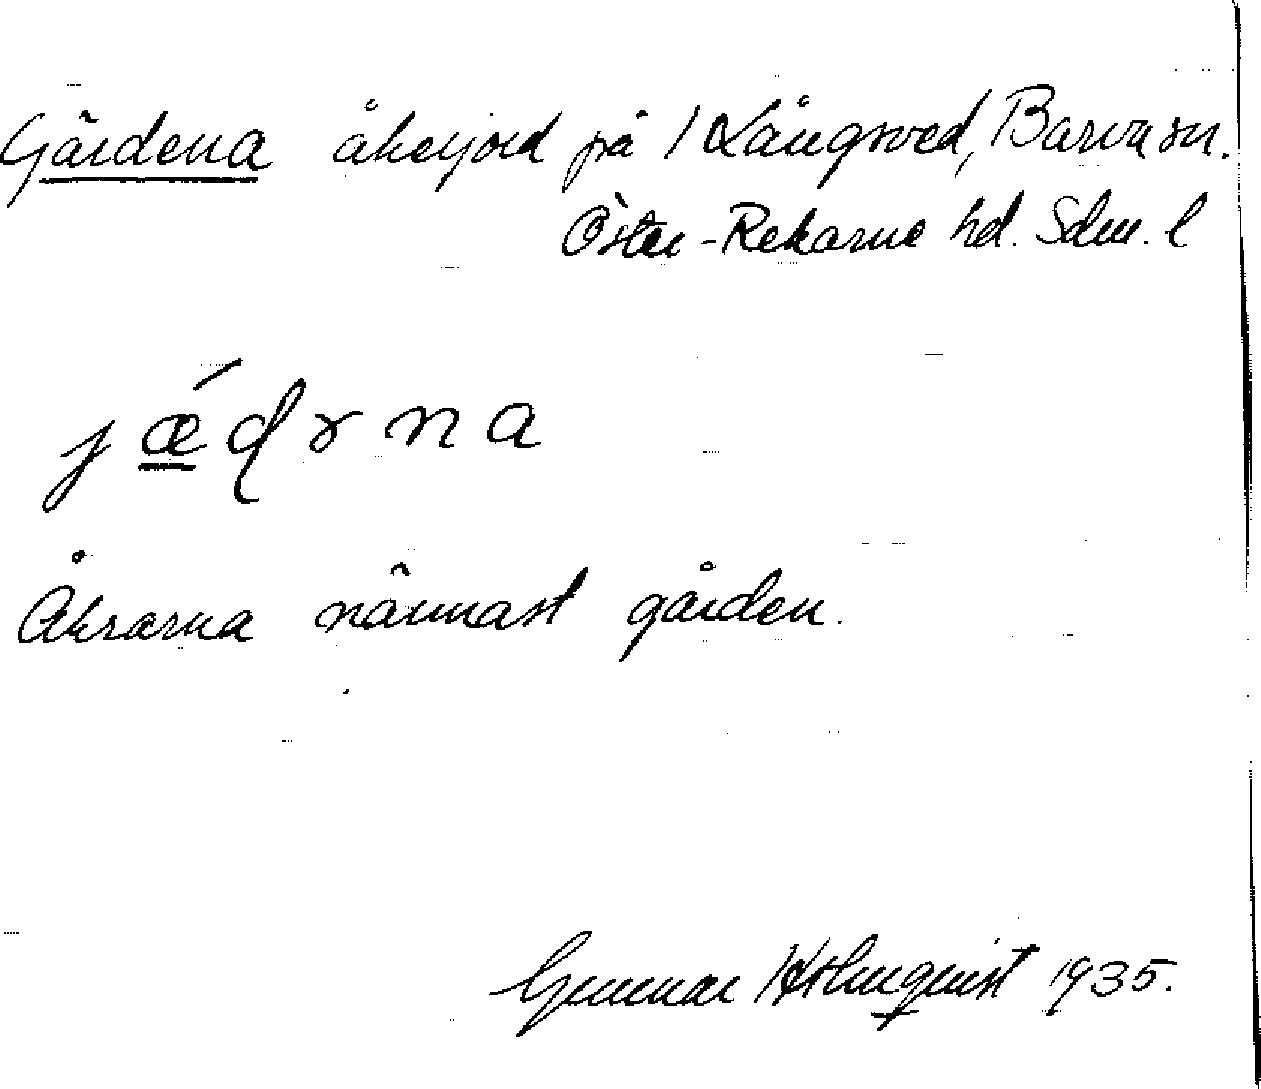 Gärdena åkerjord på / Långsved, Barva sn.
Öster-Rekarne hd. Sdm. l
jǽdrna
Åkrarna närmast gården.
Gunnar Holmquist 1935.